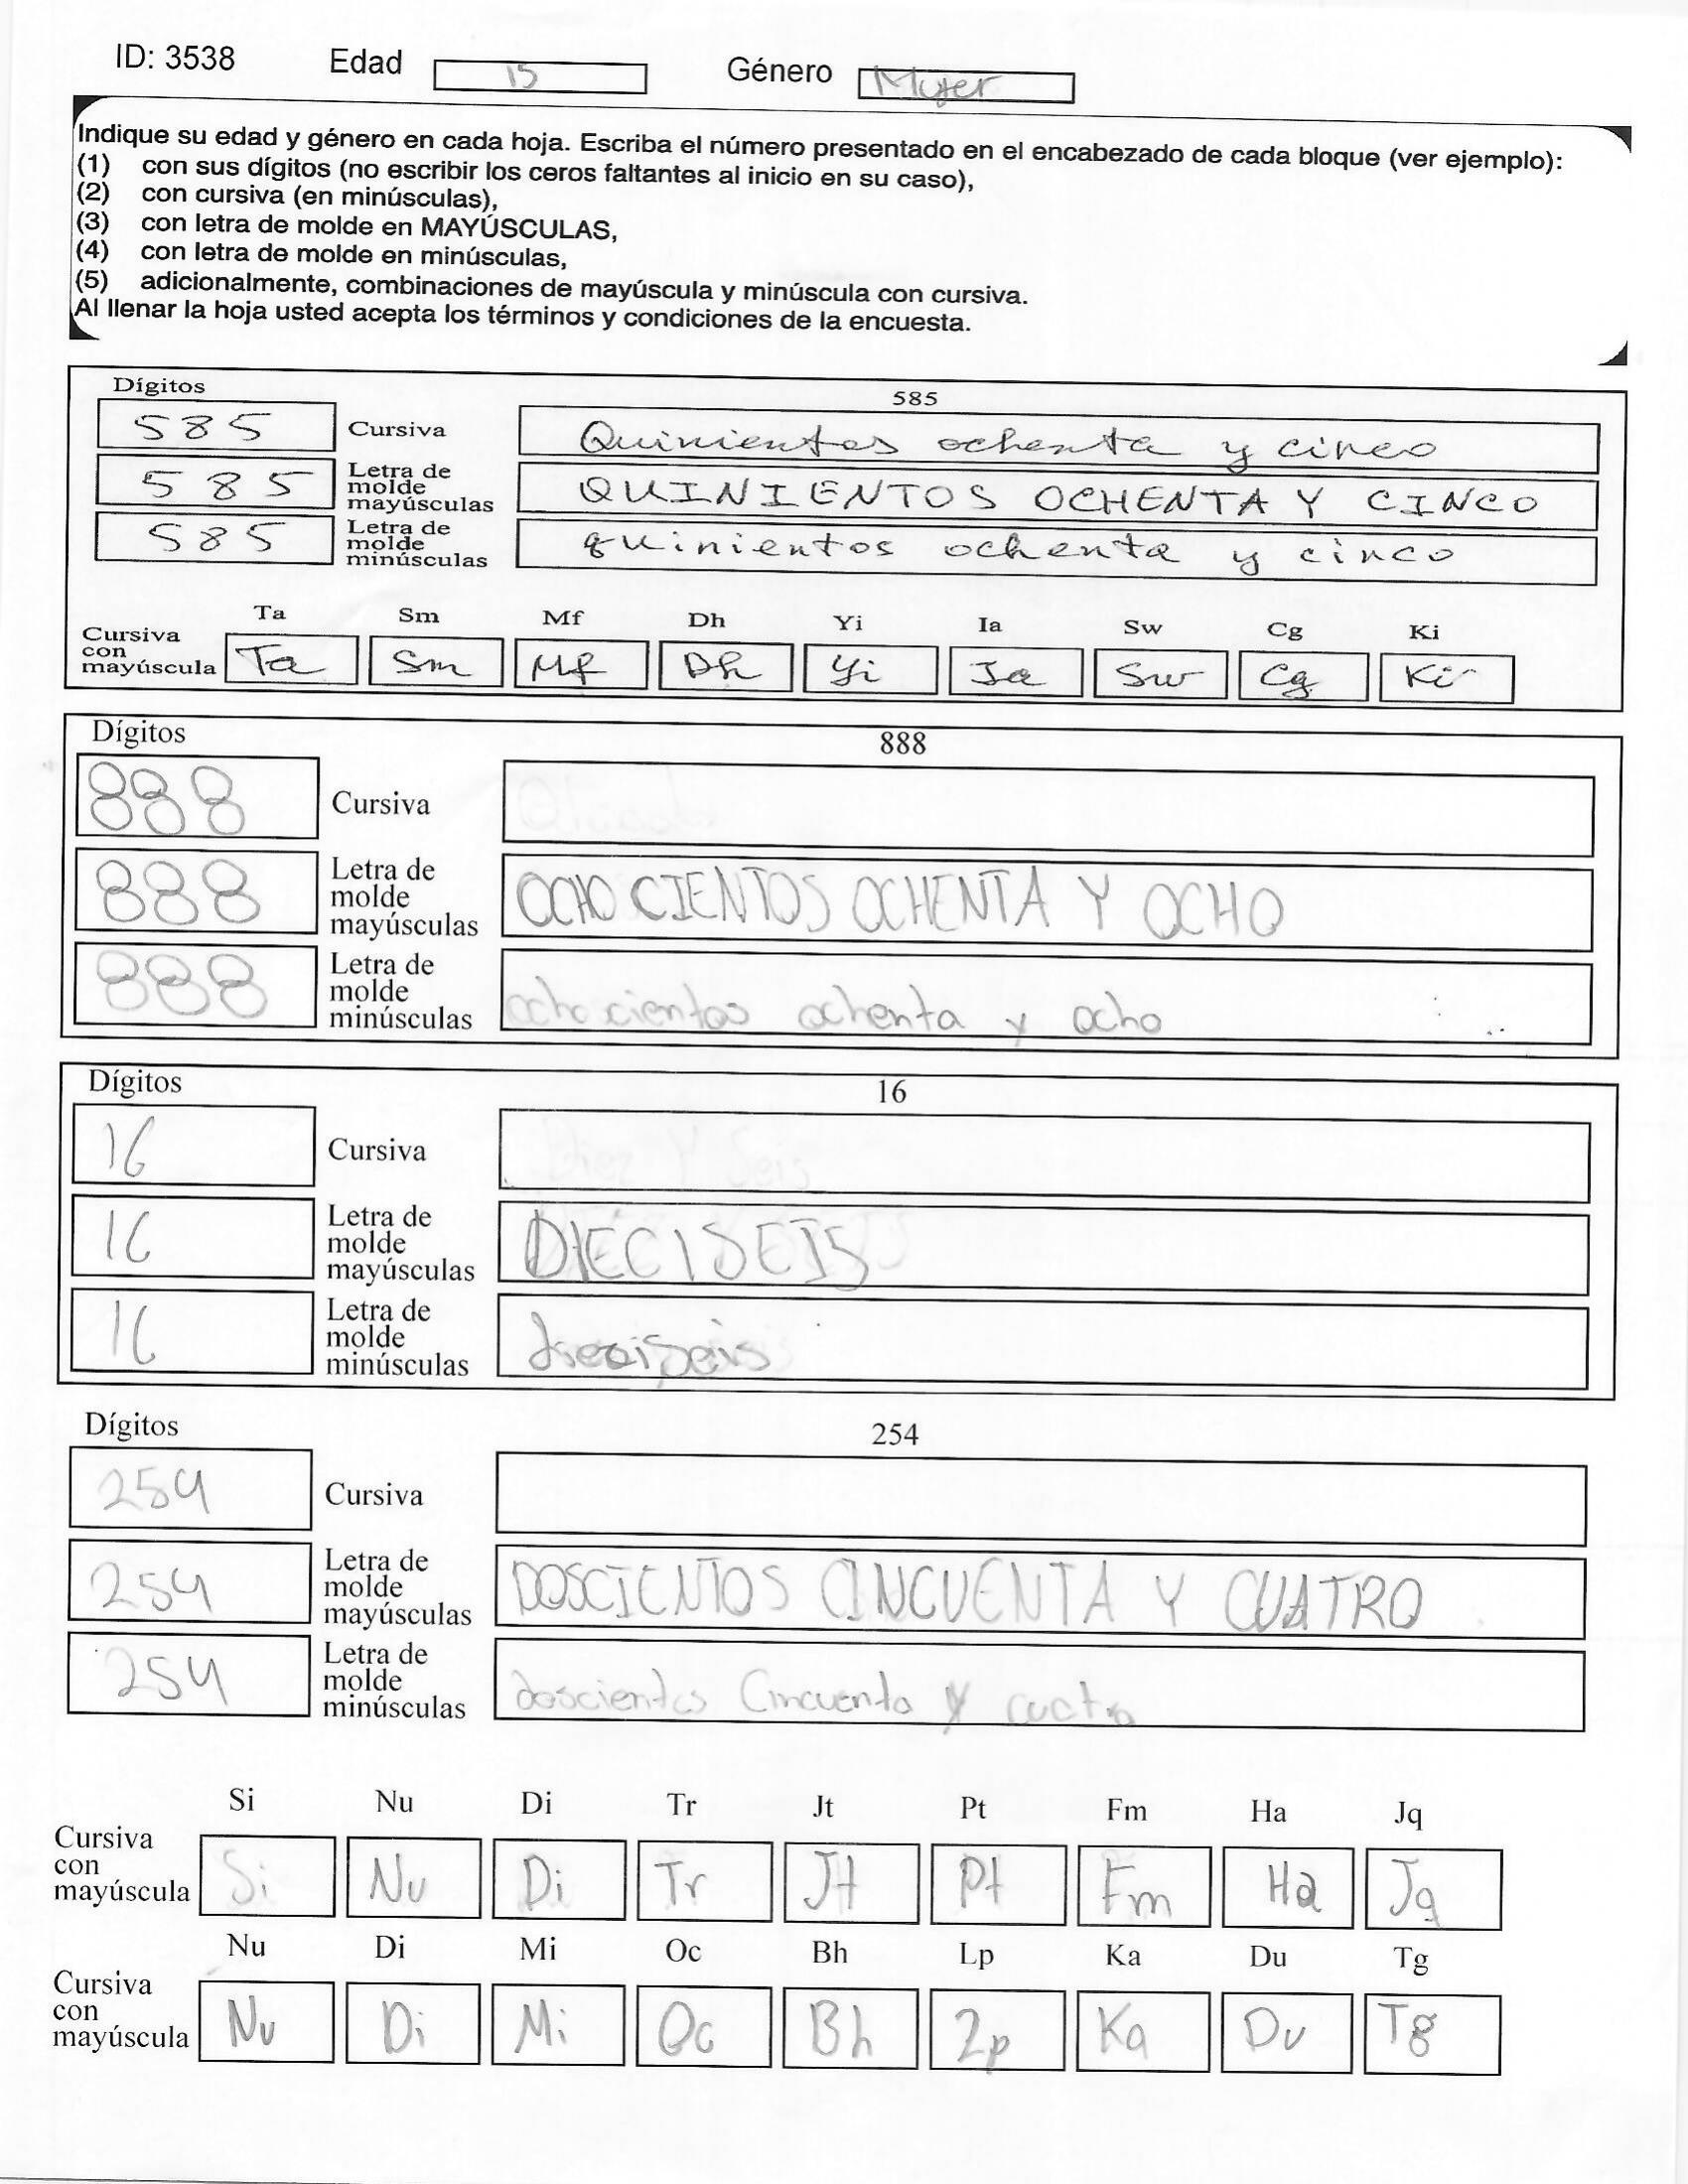 ID: 3538 Edad 15 Género Mujer
Indique su edad y género en cada hoja. Escriba el número presentado en el encabezado de cada bloque (ver ejemplo):
(1) con sus dígitos (no escribir los ceros faltantes al inicio en su caso),
(2) con cursiva (en minúsculas),
(3) con letra de molde en MAYÚSCULAS,
(4) con letra de molde en minúsculas,
(5) adicionalmente, combinaciones de mayúscula y minúscula con cursiva.
Al llenar la hoja usted acepta los términos y condiciones de la encuesta.
Dígitos 585
585 Cursiva Quinientos ochenta y cinco
585 Letra de molde mayúsculas QUINIENTOS OCHENTA Y CINCO
585 Letra de molde minúsculas quinientos ochenta y cinco
Ta Sm Mf Dh Yi Ia Sw Cg Ki
Cursiva con mayúscula Ta Sm Mf Dh Yi Ia Sw Cg Ki
Dígitos 888
888 Cursiva
888 Letra de molde mayúsculas OCHOCIENTOS OCHENTA Y OCHO
888 Letra de molde minúsculas ochocientos ochenta y ocho
Dígitos 16
16 Cursiva Diez Y Seis
16 Letra de molde mayúsculas DIECISEIS
16 Letra de molde minúsculas dieciseis
Dígitos 254
254 Cursiva
254 Letra de molde mayúsculas DOSCIENTOS CINCUENTA Y CUATRO
254 Letra de molde minúsculas doscientos Cincuenta y cuatro
Si Nu Di Tr Jt Pt Fm Ha Jq
Cursiva con mayúscula Si Nu Di Tr Jt Pt Fm Ha Jq
Nu Di Mi Oc Bh Lp Ka Du Tg
Cursiva con mayúscula Nu Di Mi Oc Bh Lp Ka Du Tg